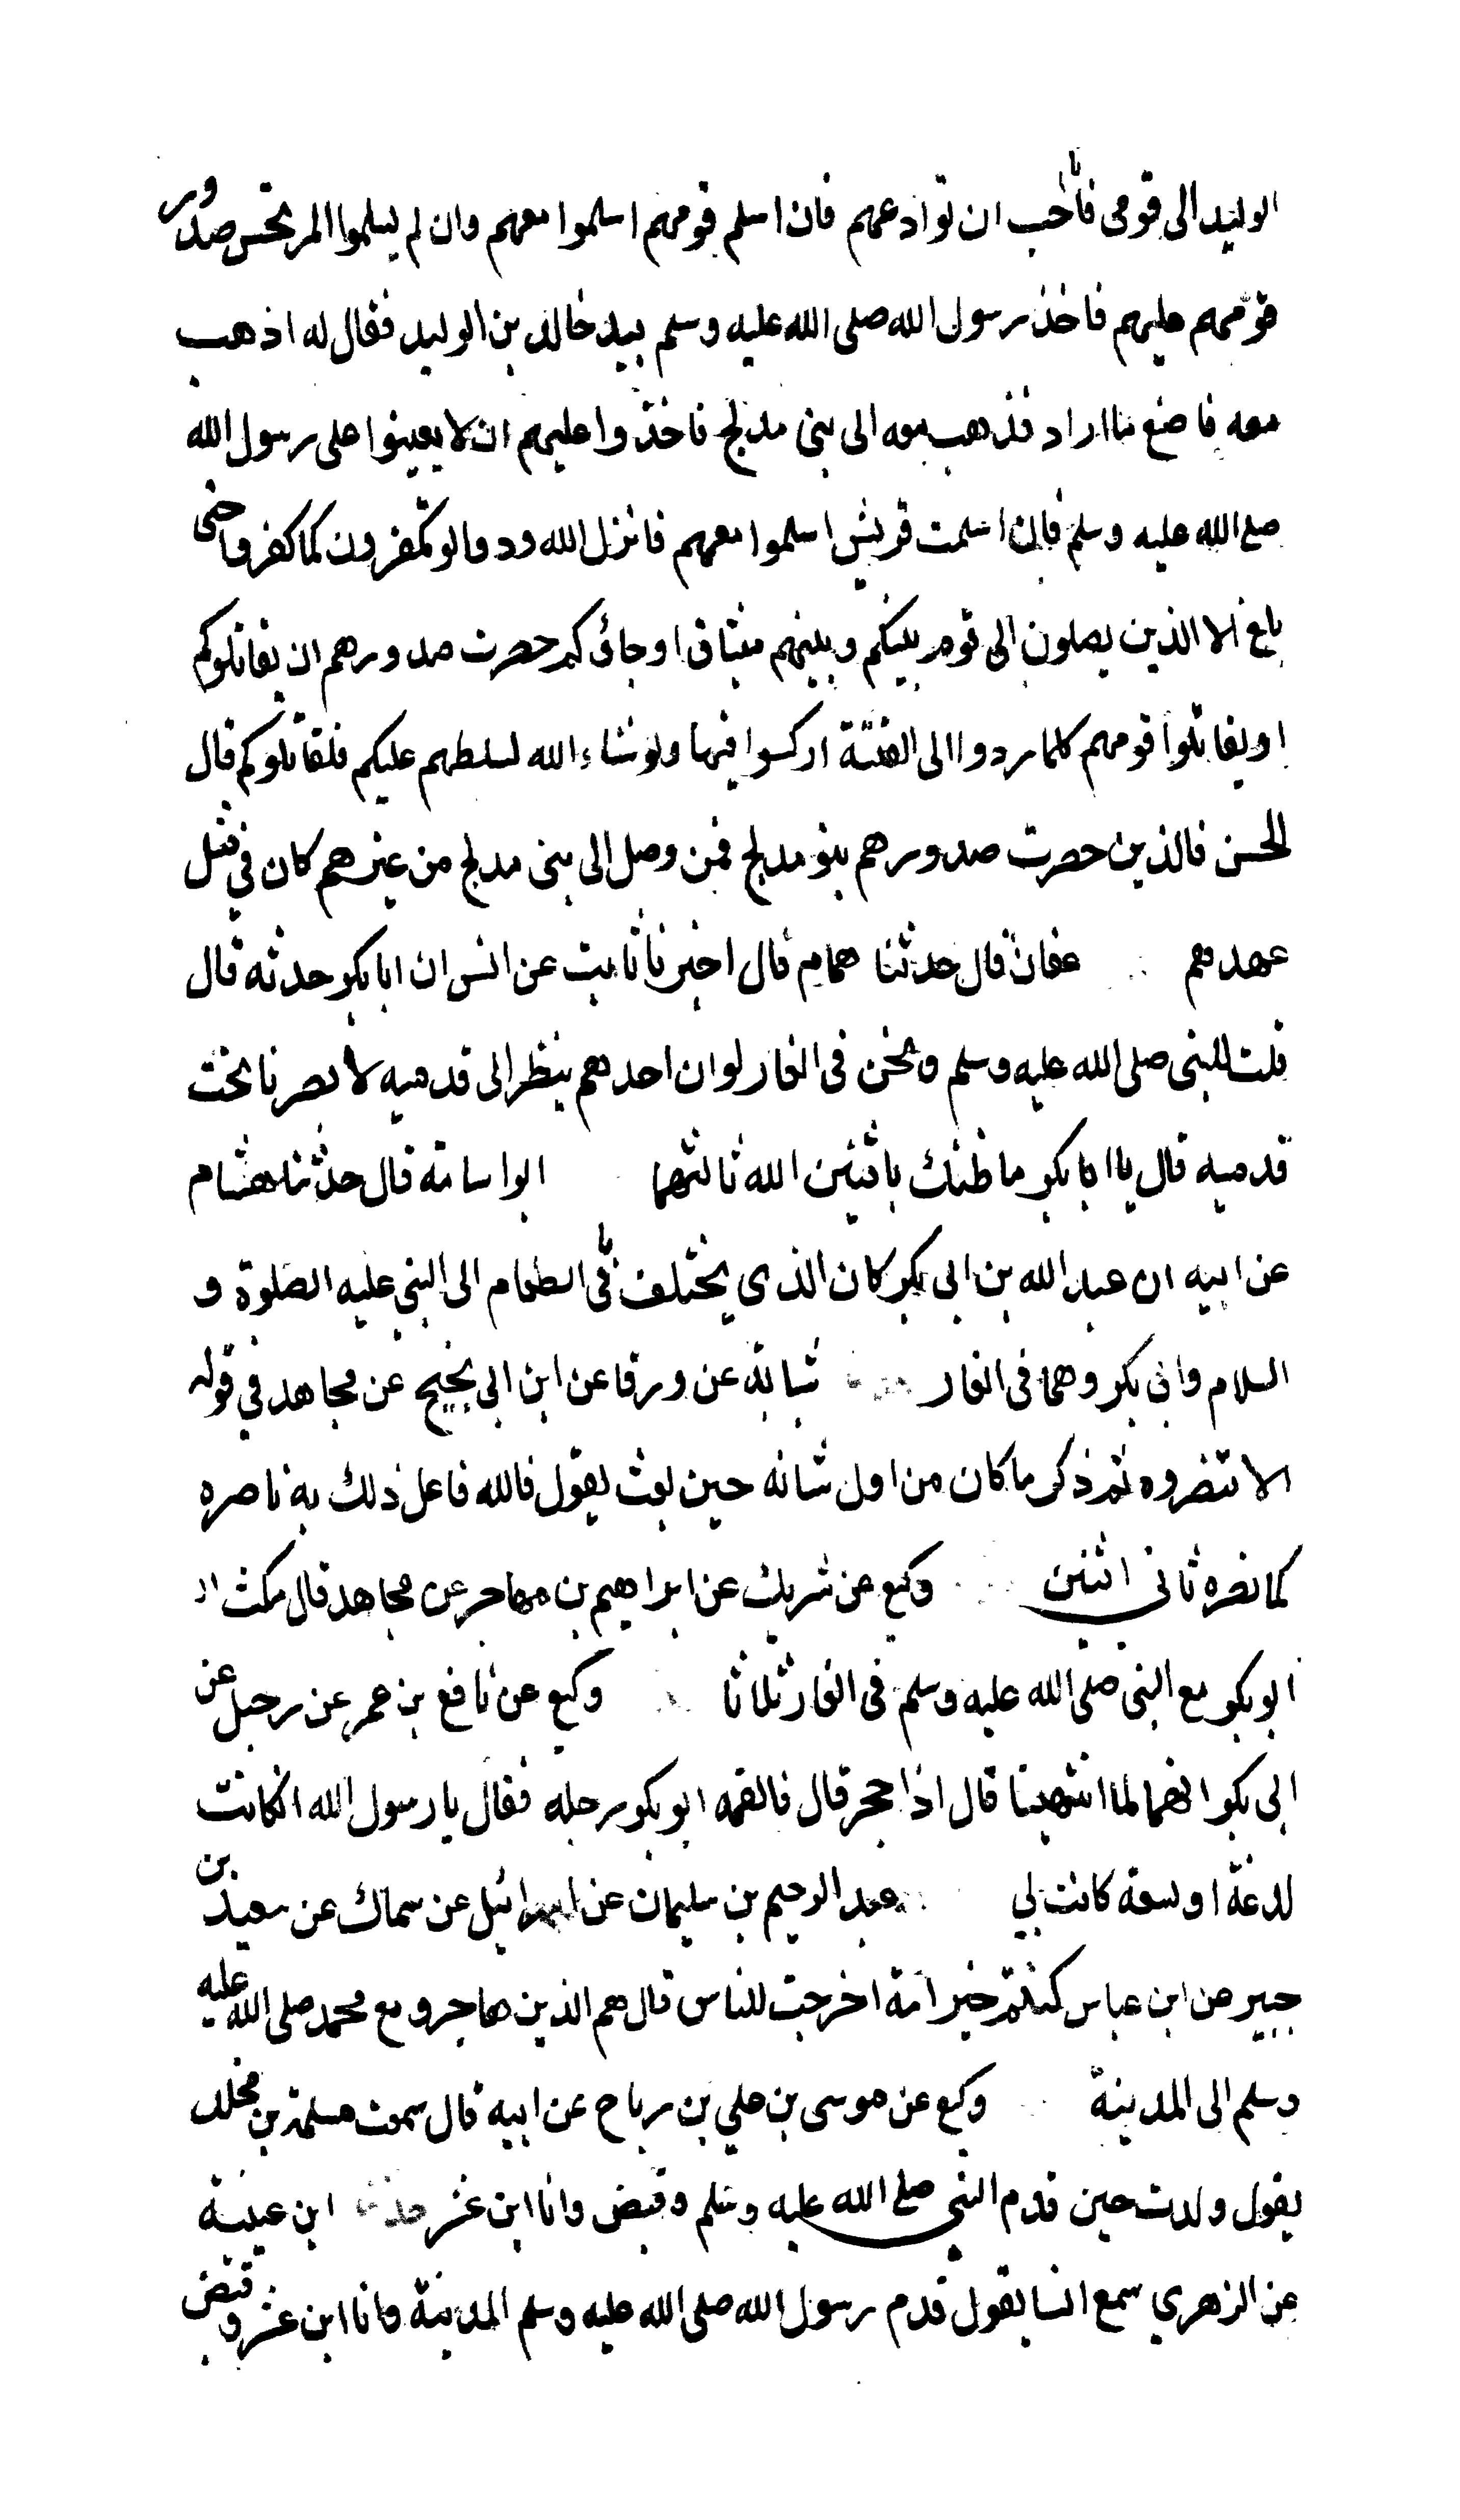 الوليد الى قومى فأحب ان توادعهم فان اسلم قومهم اسلموا معهم وان لم يسلموا لم تخش صدور
قومهم عليهم فاخذ رسول الله صلى الله عليه وسلم بيد خالد بن الوليد فقال له اذهب
معه فاصنع ما اراد فذهب معه الى بنى مدلج فاخذوا عليهم ان لا يعينوا على رسول الله
صلى الله عليه وسلم فان اسلمت قريش اسلموا معهم فانزل الله ودوا لو تكفرون كما كفروا حتى
بلغ الا الذين يصلون الى قوم بينكم وبينهم ميثاق او جاؤكم حصرت صدورهم ان يقاتلوكم
او يقاتلوا قومهم كلما ردوا الى الفتنة اركسوا فيها ولو شاء الله لسلطهم عليكم فلقاتلوكم قال
الحسن فالذين حصرت صدورهم بنو مدلج فمن وصل الى بنى مدلج من غيرهم كان فى مثل
عهدهم عفان قال حدثنا همام قال اخبرنا ثابت عن انس ان ابا بكر حدثه قال
قلت للنبى صلى الله عليه وسلم ونحن فى الغار لو ان احدهم ينظر الى قدميه لابصرنا تحت
قدميه قال يا ابا بكر ما ظنك باثنين الله ثالثهما ابو اسامة قال حدثنا هشام
عن ابيه ان عبد الله بن ابى بكر كان الذى يختلف فى الطعام الى النبى عليه الصلوة و
السلام وابى بكر وهما فى الغار شبابة عن ورقا عن ابن ابى نجيح عن مجاهد فى قوله
الا تنصروه ثم ذكر ما كان من اول شانه حين بعث يقول فالله فاعل ذلك به ناصره
كما نصره ثانى اثنين وكيع عن شريك عن ابراهيم بن مهاجر عن مجاهد قال مكث
ابو بكر مع النبى صلى الله عليه وسلم فى الغار ثلاثا وكيع عن نافع بن عمر عن رجل عن
ابى بكر انهما لما انتهينا قال اذا جحر قال فالقمه ابو بكر رجله فقال يا رسول الله ان كانت
لدغة او لسعة كانت بي عبد الرحيم بن سليمان عن اسرائيل عن سماك عن سعيد بن
جبير عن ابن عباس كنتم خير امة اخرجت للناس قال هم الذين هاجرو مع محمد صلى الله عليه
وسلم الى المدينة وكيع عن موسى بن علي بن رباح عن ابيه قال سمعت مسلمة بن مخلد
يقول ولدت حين قدم النبى صلى الله عليه وسلم وقبض وانا ابن عشر حدثنا ابن عيينة
عن الزهري سمع انسا يقول قدم رسول الله صلى الله عليه وسلم المدينة وانا ابن عشر وقبض